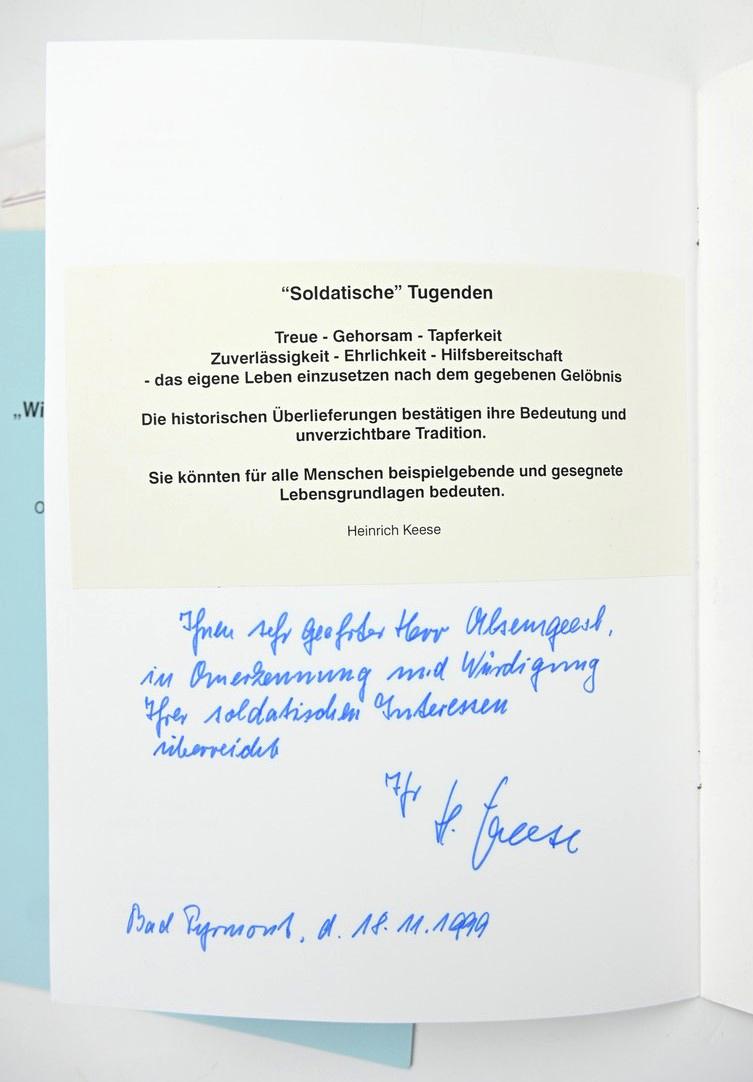 „Wi
O
“Soldatische” Tugenden
Treue - Gehorsam - Tapferkeit
Zuverlässigkeit - Ehrlichkeit - Hilfsbereitschaft
- das eigene Leben einzusetzen nach dem gegebenen Gelöbnis
Die historischen Überlieferungen bestätigen ihre Bedeutung und
unverzichtbare Tradition.
Sie könnten für alle Menschen beispielgebende und gesegnete
Lebensgrundlagen bedeuten.
Heinrich Keese
Ihnen sehr geehrter Herr
in Anerkennung und Würdigung
Ihrer soldatischen Interessen
überreicht
Ihr H. Keese
Bad Pyrmont, d. 18.11.1999